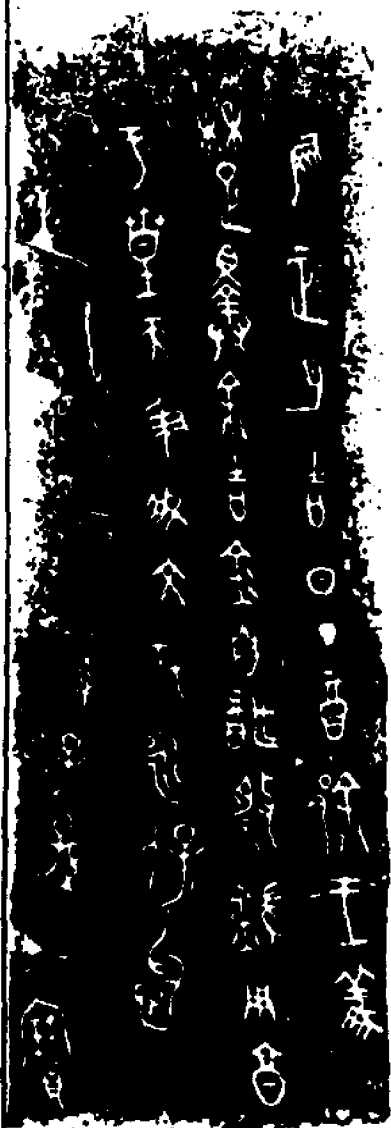 隹正月吉日丁酉徐王義
楚擇余吉金自酢祭鍴用享
于皇天及我文考永保怡身
子孫寶